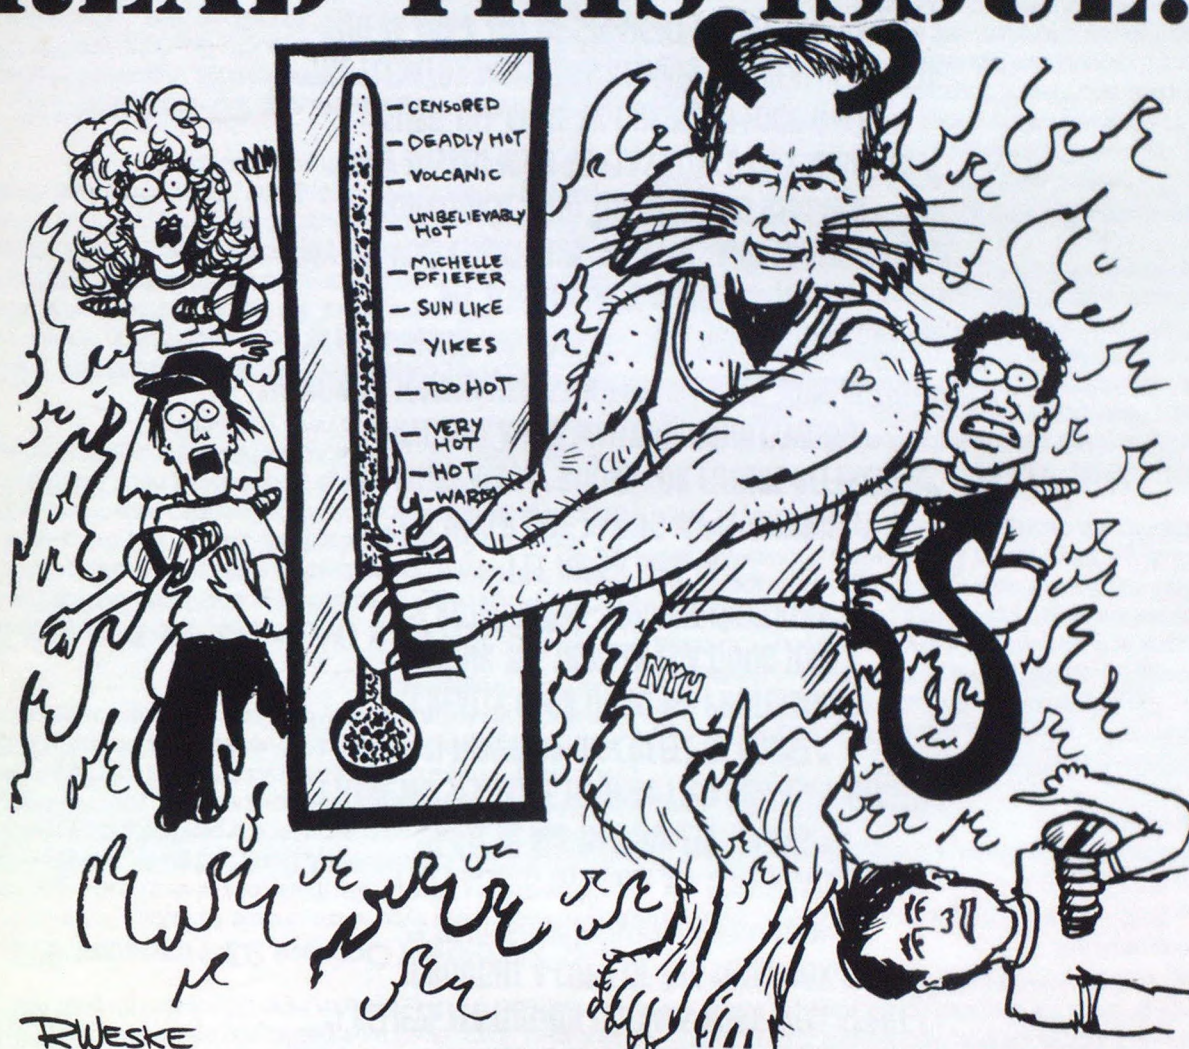 READ THIS ISSUE!
CENSORED
DEADLY HOT
VOLCANIC
UNBELIEVABLY
HOT
MICHELLE
PFIEFER
SUN LIKE
YIKES
TOO HOT
VERY
HOT
HOT
WARM
NYH
RWESKE